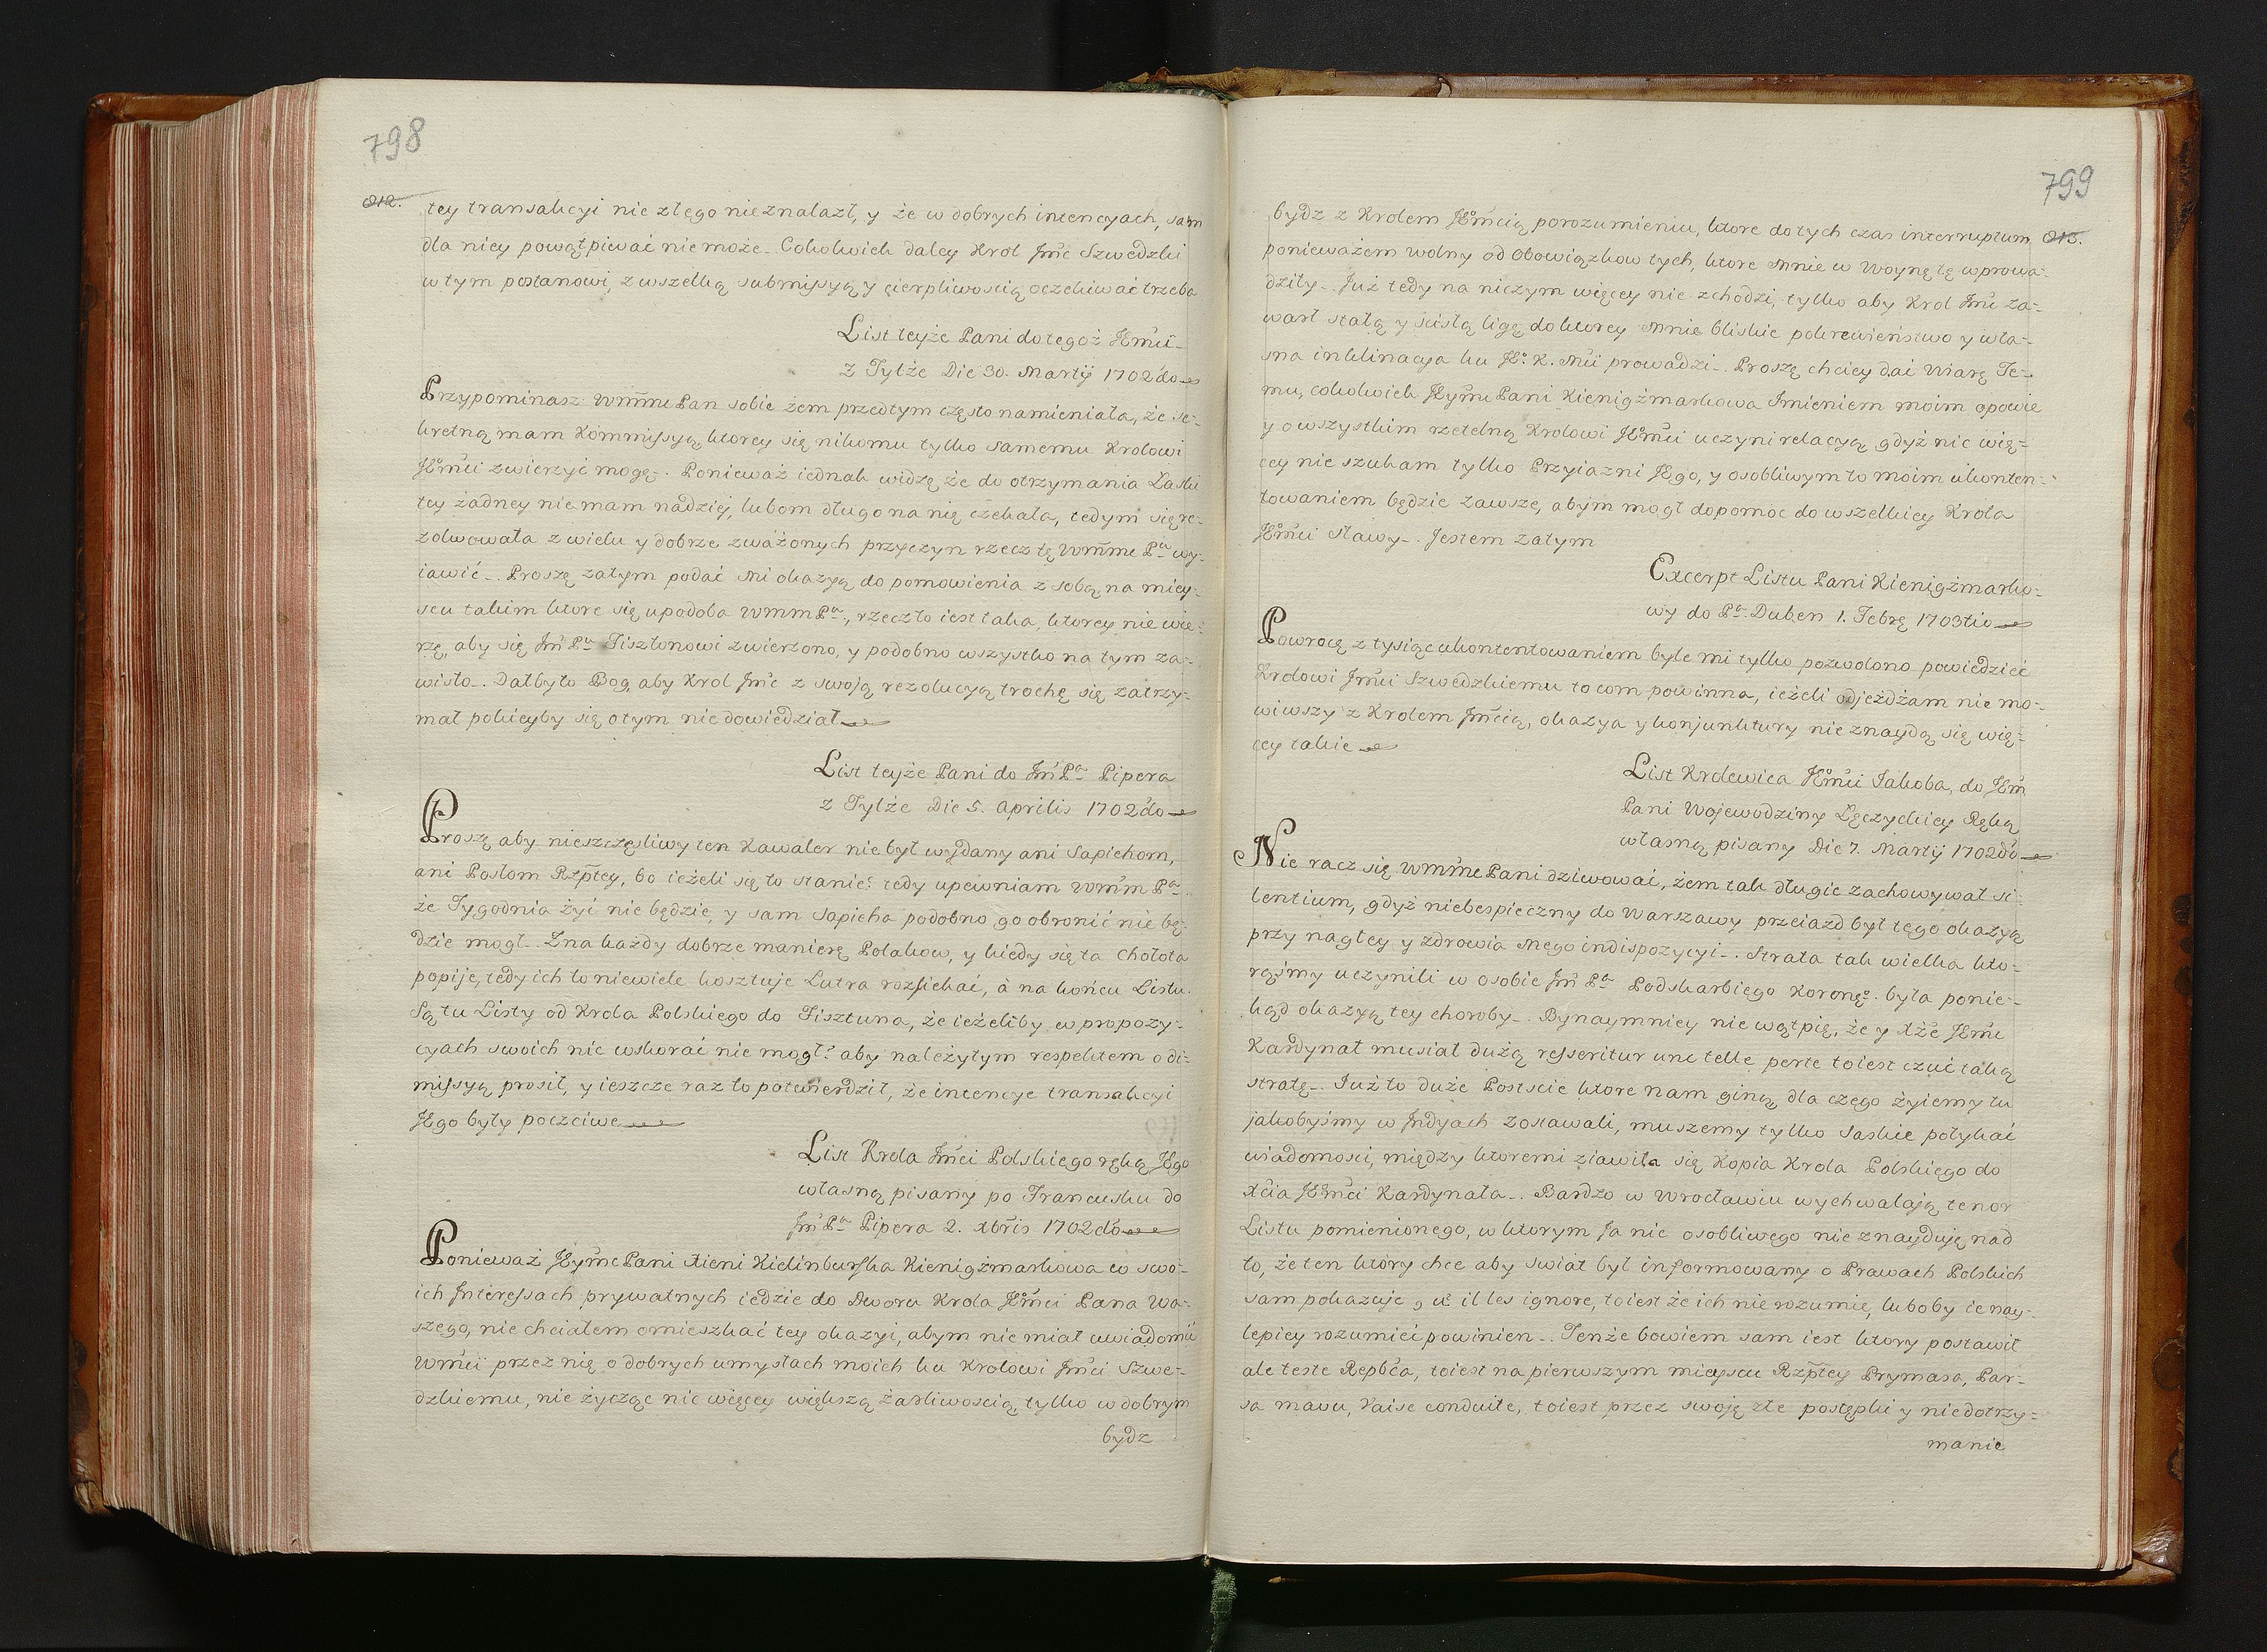 798
812.
tey transakcyi nic złego nieznalazł, y że w dobrych intencyach, sam
dla niey powątpiewać nie może. Cokolwiek daley Krol Jmć Szwedzki
w tym postanowi, z wszelką submissyą y cierpliwoscią oczekiwać trzeba
List teyże Pani do tegoż Jemći
z Tylże Die 30. Martij 1702do
Przypominasz Wmme Pan sobie żem przedtym często namieniała, że se-
kretną mam Kommissyą ktorey się nikomu tylko samemu Krolowi
Jemći zwierzyć mogę. Ponieważ iednak widzę że do otrzymania Łaski
tey żadney niemam nadziej, lubom długo na nię czekała, tedym się re-
zolwowała z wielu y dobrze zważonych przyczyn rzecz tę Wmme Pu wy-
iawić. Proszę zatym podać mi okazyą do pomowienia z sobą na miey-
scu takim ktore się upodoba Wmm Pu, rzecz to iest taka, ktorey nie wie-
rzę, aby się Jm Pu Fisztonowi zwierzono, y podobno wszystko na tym za-
wisło. Dałbyto Bog, aby Krol Jmć z swoją rezolucyą trochę się zatrzy-
mał pokieyby się o tym nie dowiedział
List teyże Pani do Jm Pa Pipera
z Tylże Die 5. Aprilis 1702do
Proszę aby nieszczęsliwy ten Kawaler nie był wydany ani Sapiehom,
ani Posłom Rzptey, bo ieżeli się to stanie: tedy upewniam Wmm Pa
że Tygodnia żyć nie będzie, y sam Sapieha podobno go obronić nie bę-
dzie mogł. Zna każdy dobrze manierę Polakow, y kiedy się ta Chołota
popije, tedy ich to niewiele kosztuje Lutra rozsiekać, à na końcu Listu.
Są tu Listy od Krola Polskiego do Fisztuna, że ieżeliby w propozy-
cyach swoich nic wskorać nie mogł: aby należytym respektem o di-
missyą prosił, y ieszcze raz to potwierdził, że intencye transakcyi
Jego były poczciwe
List Krola Jmći Polskiego ręką Jego
własną pisany po Francusku do
Jm Pa Pipera 2. Xbris 1702do
Ponieważ Jeymc Pani Xieni Kielinburska Kienigżmarkowa w swo-
ich Jnteressach prywatnych iedzie do Dworu Krola Jemći Pana Wa-
szego, nie chciałem omieszkać tey okazyi, abym nie miał uwiadomić
Wmći przez nię o dobrych umysłach moich ku Krolowi Jmći Szwe-
dzkiemu, nie życząc nic więcey większą żarliwoscią, tylko w dobrym
bydz
799
813.
bydz z Krolem Jemcią porozumieniu, ktore do tych czas interruptum
ponieważem wolny od Obowiązkow tych, ktore mnie w Woynę tę wprowa-
dziły. Już tedy na niczym więcey nie zchodzi, tylko aby Krol Jmć za-
warł stałą y scisłą ligę do ktorey mnie bliskie pokrewieństwo y wła-
sna inklinacya ku Jo. K. Mci prowadzi. Proszę chciey dać Wiarę Te-
mu, cokolwiek Jeyme Pani Kienigżmarkowa Jmieniem moim opowie
y o wszystkim rzetelną Krolowi Jemći uczyni relacyą, gdyż nic wię-
cey nie szukam tylko Przyiazni Jego, y osobliwym to moim ukonten-
towaniem będzie zawsze, abym mogł dopomoc do wszelkiey Krola
Jemći Sławy. Jestem zatym
Excerpt Listu Pani Kienigżmarko-
wy do Pa. Duben 1. Febrę 1703tio
Powrocę z tysiąc ukontentowaniem byle mi tylko pozwolono powiedzieć
Krolowi Jmći Szwedzkiemu to com powinna, ieżeli odjeżdżam nie mo-
wiwszy z Krolem Jmcią, okazya y konjunktury nie znaydą się wię-
cey takie
List Krolewica Jemći Jakoba, do Jem
Pani Wojewodziny Łęczyckiey Ręką
własną pisany Die 7. Martij 1702do
Nie racz się Wmme Pani dziwować, żem tak długie zachowywał si-
lentium, gdyż niebespieczny do Warszawy przeiazd był tego okazyą
przy nagłey y zdrowia mego indispozycyi. Strata tak wielka kto-
rąsmy uczynili w osobie Jm Pa Podskarbiego Korongo. była ponie-
kąd okazyą tey choroby. Bynaymniey nie wątpię, że y Xże Jemć
Kardynał musiał dużą resseritur une telle perte toiest czuć taką
stratę. Już to duże Postscie ktore nam giną, dla czego żyiemy tu
jakobyśmy w Jndyach zostawali, muszemy tylko Saskie połykać
wiadomosci, między ktoremi ziawiła się Kopia Krola Polskiego do
Xcia Jemći Kardynała. Bardzo w Wrocławiu wychwalają tenor
Listu pomienionego, w ktorym Ja nic osobliwego nie znayduję nad
to, że ten ktory chce aby swiat był informowany o Prawach Polskich
sam pokazuje, qu il les ignore, toiest że ich nie rozumie, luboby ie nay-
lepiey rozumieć powinien. Tenże bowiem sam iest ktory postawił
ale teste Repbca, toiest na pierwszym mieyscu Rzptey Prymasa, Par-
sa mauu, Vaise conduite, toiest przez swoję złe postępki y niedotrzy-
manie